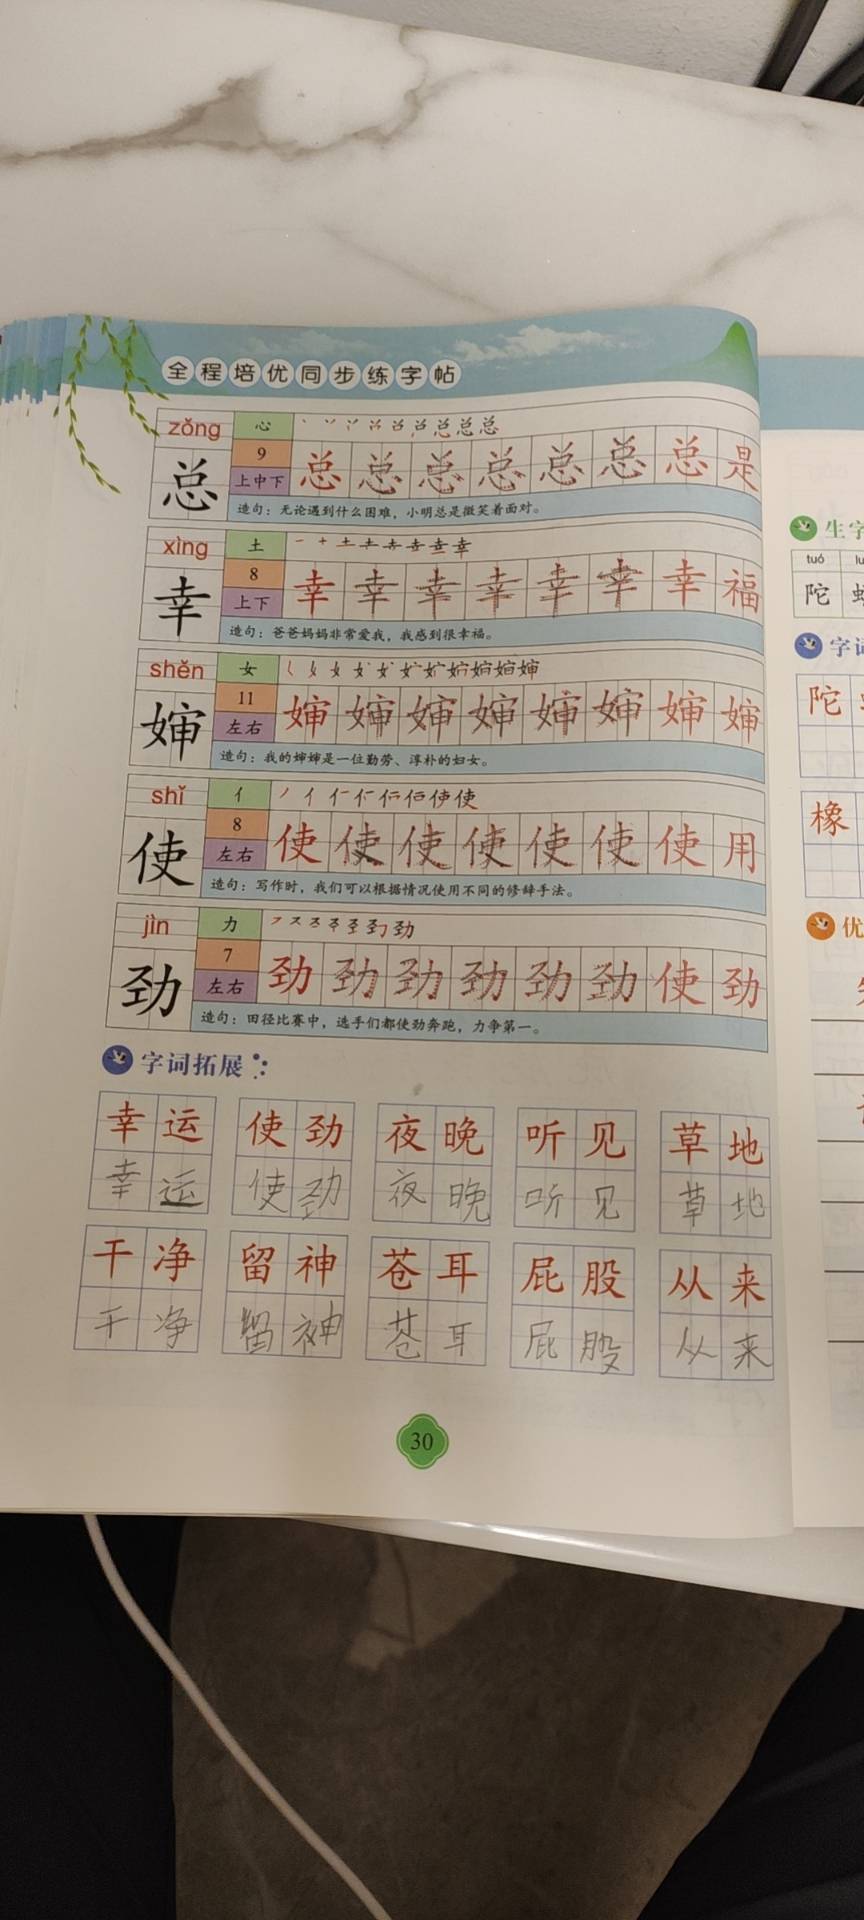 全程培优同步练字帖
zǒng 心
总 9 总 总 总 总 总 总 总 是
上中下
造句：无论遇到什么困难，小明总是微笑着面对。
xìng 土
幸 8 幸 幸 幸 幸 幸 幸 幸 福
上下
造句：爸爸妈妈非常爱我，我感到很幸福。
shěn 女
婶 11 婶 婶 婶 婶 婶 婶 婶 婶
左右
造句：我的婶婶是一位勤劳、淳朴的妇女。
shǐ 亻
使 8 使 使 使 使 使 使 使 用
左右
造句：写作时，我们可以根据情况使用不同的修辞手法。
jìn 力
劲 7 劲 劲 劲 劲 劲 劲 使 劲
左右
造句：田径比赛中，选手们都使劲奔跑，力争第一。
字词拓展
幸运 使劲 夜晚 听见 草地
幸运 使劲 夜晚 听见 草地
干净 留神 苍耳 屁股 从来
干净 留神 苍耳 屁股 从来
30
生字
tuó
陀
字词
陀
橡
优